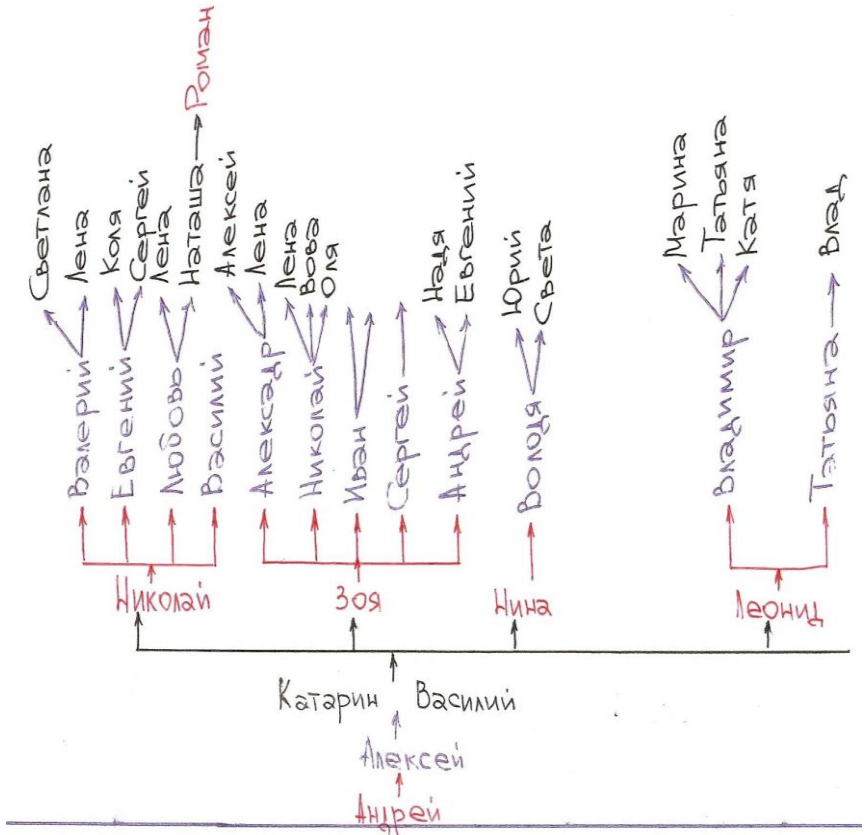 Роман
Светлана
Лена
Коля
Сергей
Лена
Наташа
Алексей
Лена
Лена
Вова
Оля
Надя
Евгений
Юрий
Света
Марина
Татьяна
Катя
Влад
Валерий
Евгений
Любовь
Василий
Алексадр
Николай
Иван
Сергей
Андрей
Володя
Владимир
Татьяна
Николай
Зоя
Нина
Леонид
Катарин Василий
Алексей
Андрей